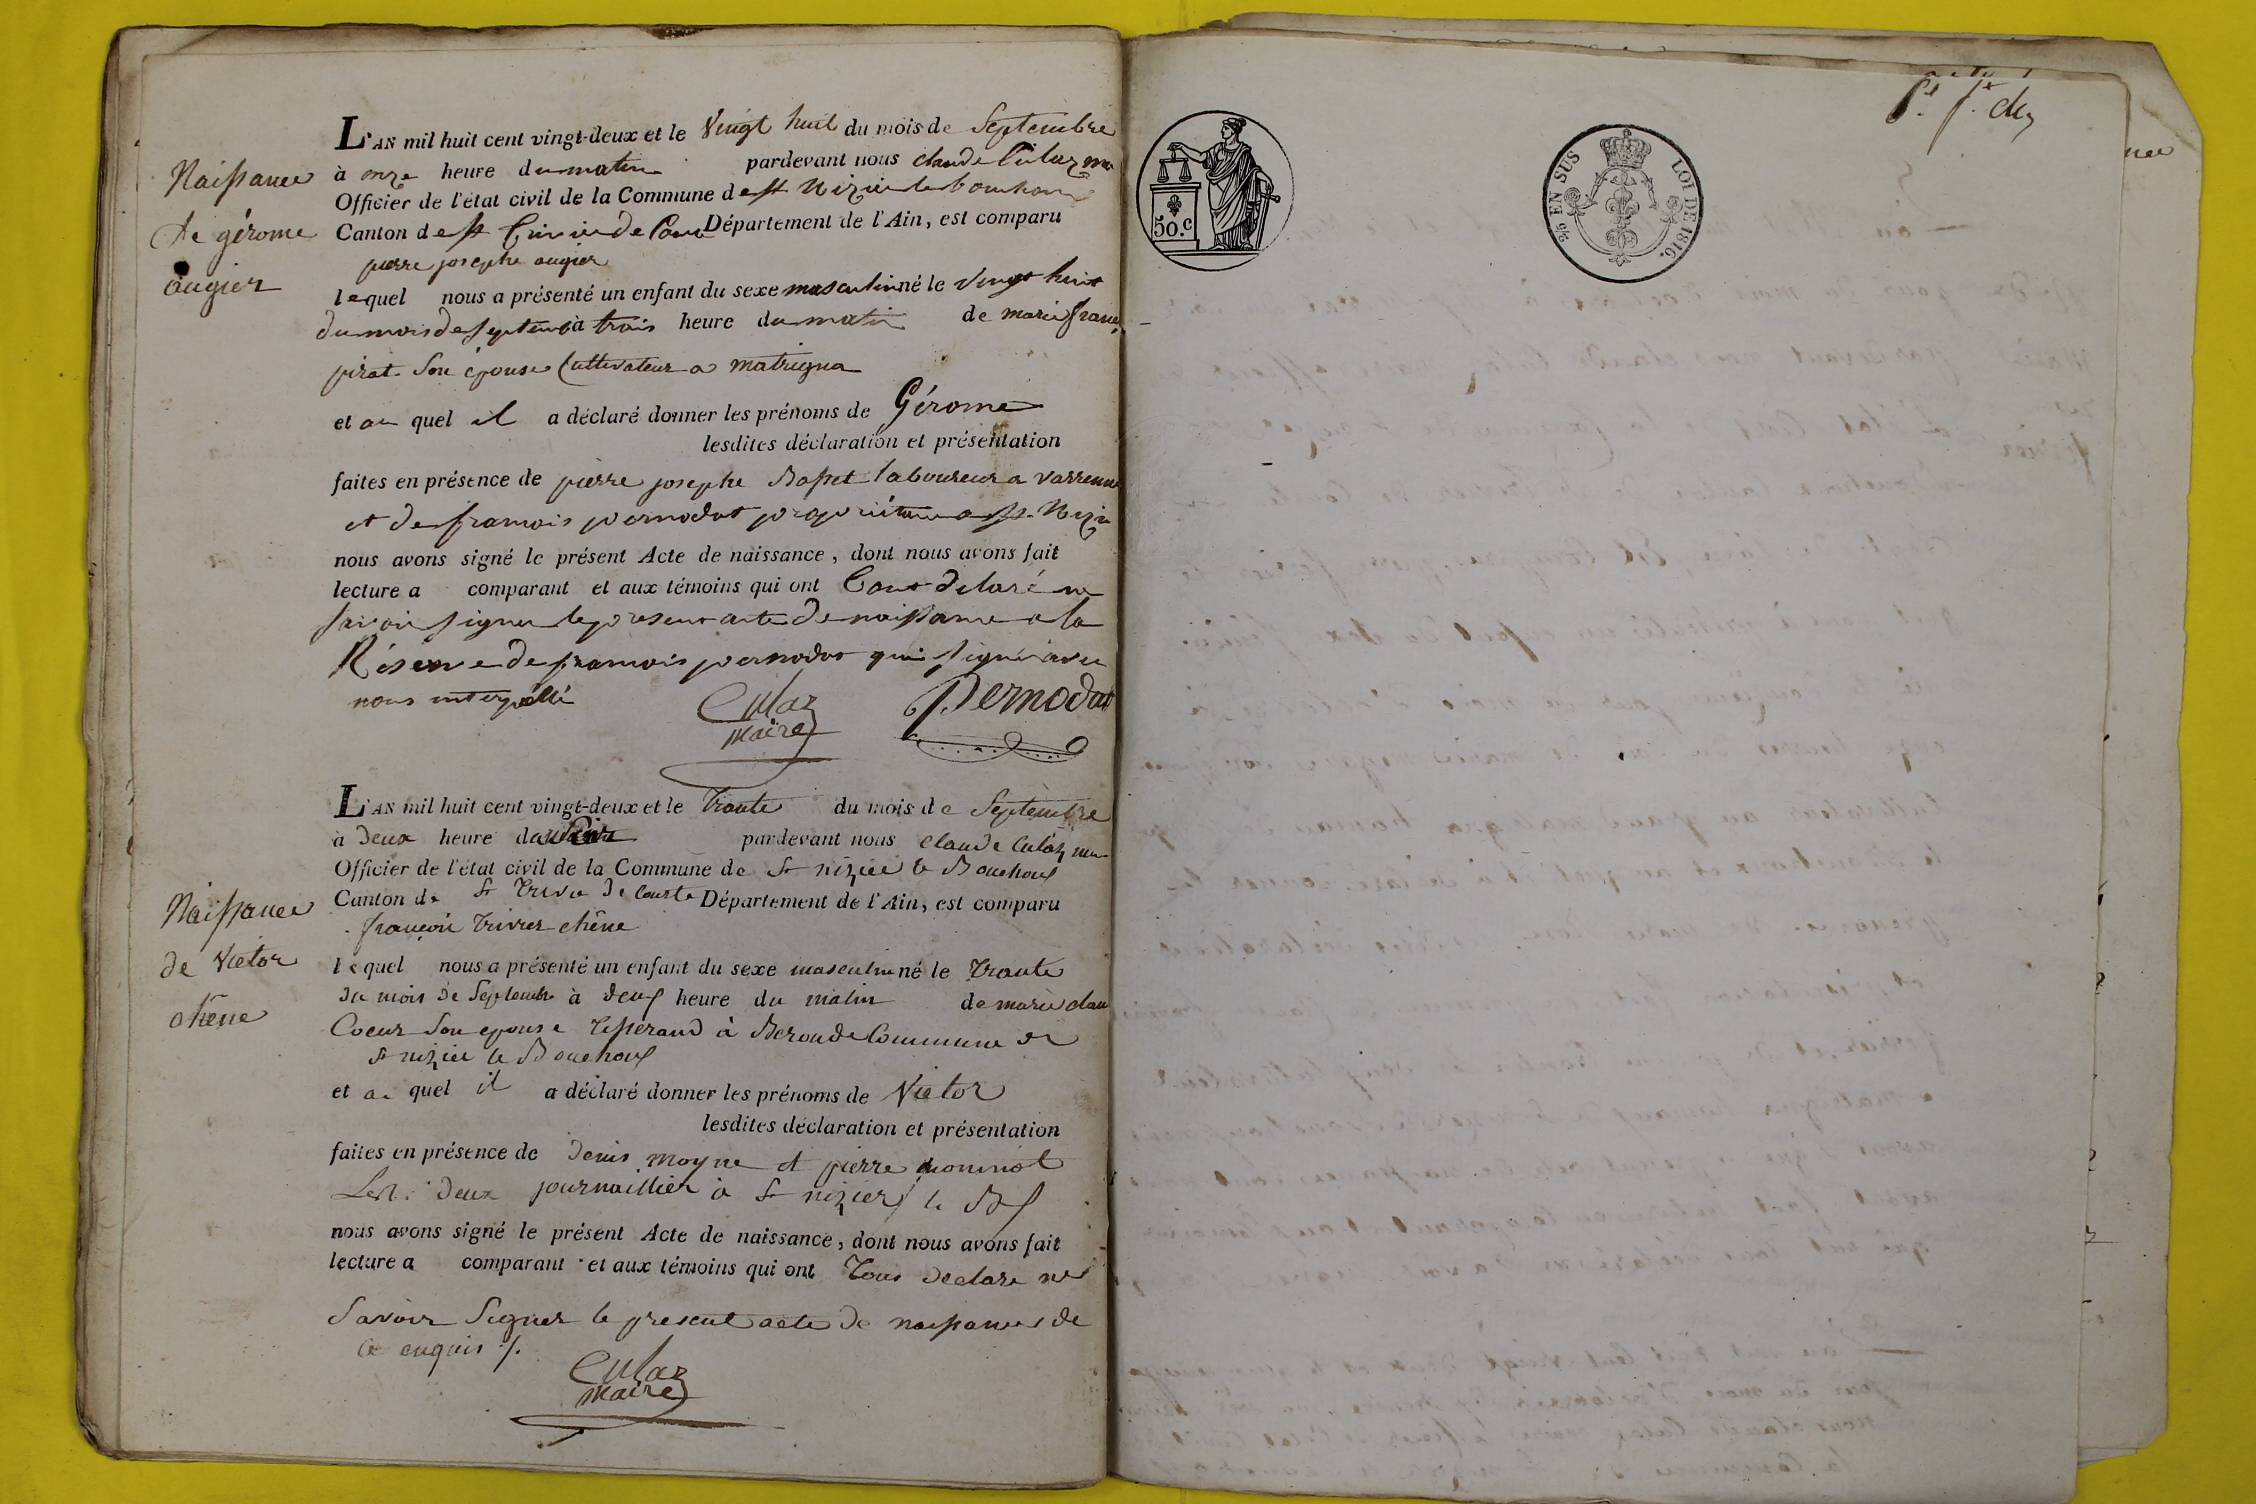 Naissance
de gérome
augier
L'AN mil huit cent vingt-deux et le Vingt huit du mois de Septembre
à onze heure du matin pardevant nous claude Culaz
Officier de l'état civil de la Commune de st Nizier le bouchoux
Canton de st Trivier de Cour Département de l'Ain, est comparu
pierre josephe augier
lequel nous a présenté un enfant du sexe masculin né le vingt huit
du mois de septemb à trois heure du matin de marie
pirat Son épouse Cultivateur a matrigna
et au quel il a déclaré donner les prénoms de Gérome
lesdites déclaration et présentation
faites en présence de pierre josephe Basset laboureur a varrenne
et de framois pernodat propriétaire a st Nizie
nous avons signé le présent Acte de naissance, dont nous avons fait
lecture a comparant et aux témoins qui ont tous declaré ne
savoir signer le present acte de naissance a la
Réserve de framois pernodat qui signé avec
nous interpéllé
Culaz
Maire
Pernodat
Naissance
de Victor
chêne
L'AN mil huit cent vingt-deux et le trante du mois de Septembre
à Deux heure du soir pardevant nous claude Culaz
Officier de l'état civil de la Commune de St nizier le Bouchoux
Canton de St Trivie De Courte Département de l'Ain, est comparu
françois trivier chêne
lequel nous a présenté un enfant du sexe masculin né le trante
du mois de Septembre à deux heure du matin de marie clau
Coeur Son epouse tisserand à Beronde Commune de
St nizier le Bouchoux
et au quel il a déclaré donner les prénoms de Victor
lesdites déclaration et présentation
faites en présence de denis moyne et pierre monniot
deux journaillier à St nizier le Bx
nous avons signé le présent Acte de naissance, dont nous avons fait
lecture a comparant et aux témoins qui ont tous declare ne
Savoir Signer le present acte de naissances de
ce enquis ./.
Culaz
Maire
50.c
2/5 EN SUS
LOI DE 1816.